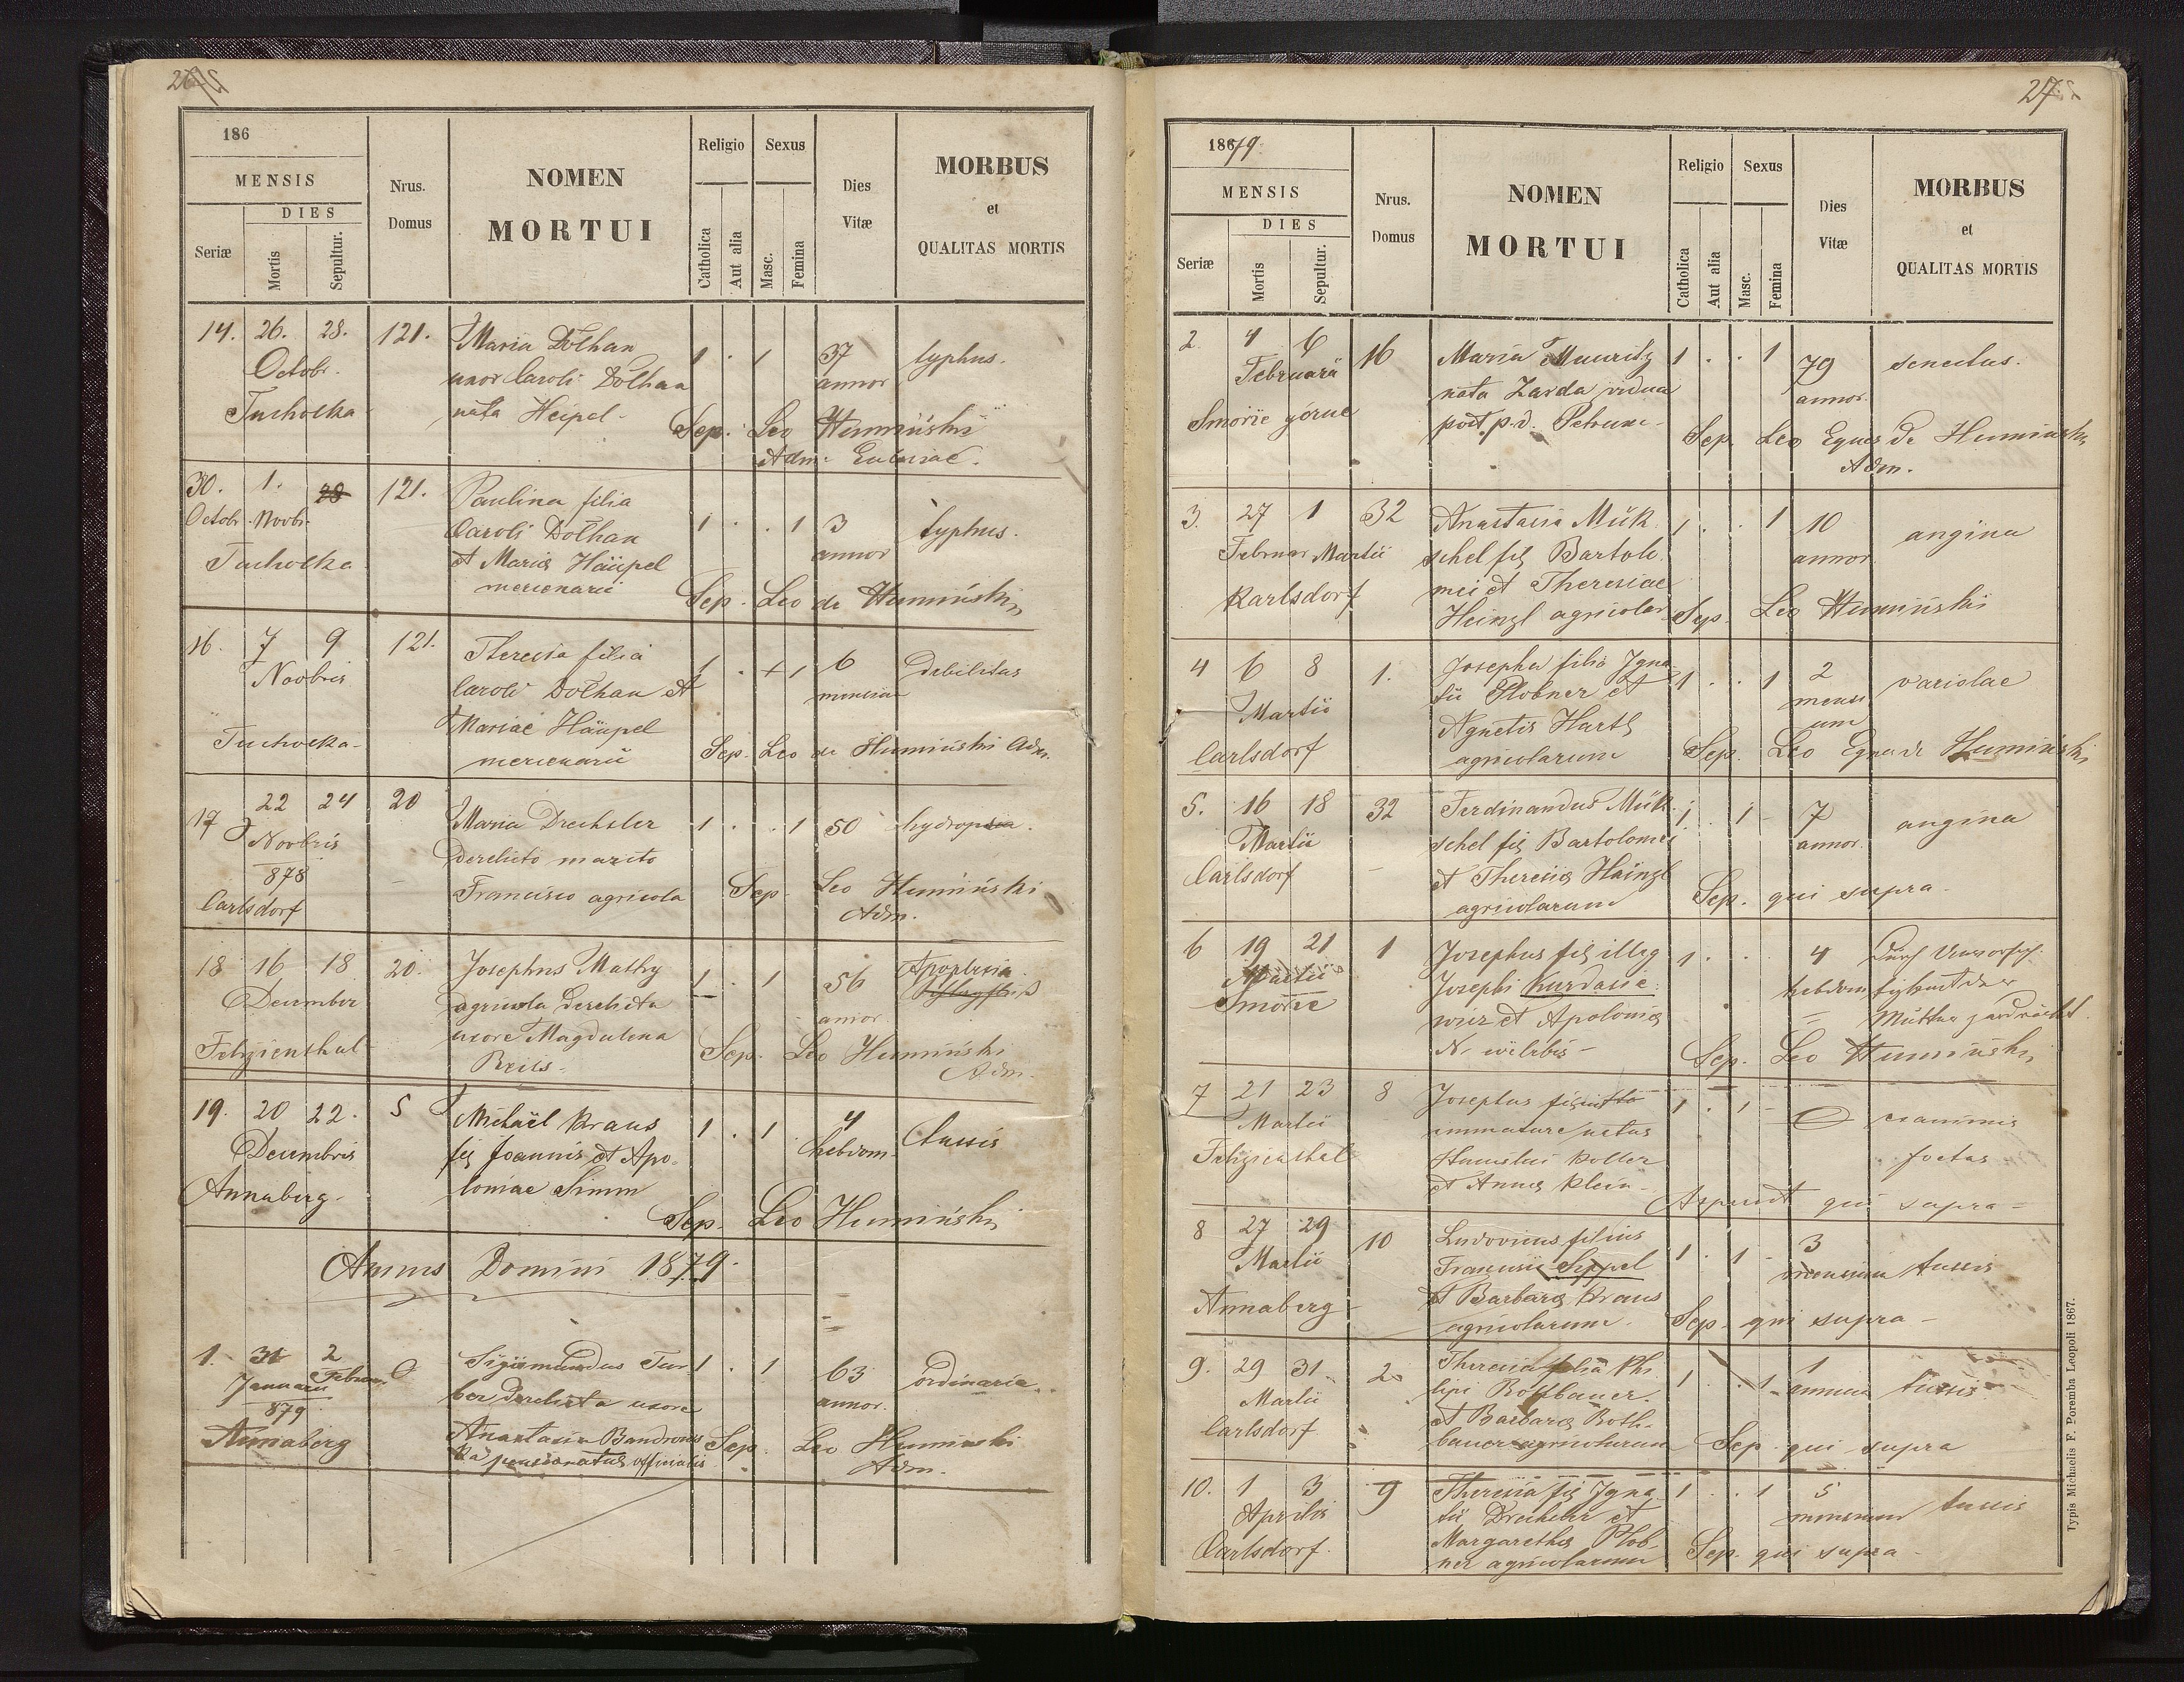 26
186
MENSIS
DIES
Seriæ
Mortis
Sepultur.
Nrus.
Domus
NOMEN
MORTUI
Religio
Catholica
Aut alia
Sexus
Masc.
Femina
Dies
Vitæ
MORBUS
et
QUALITAS MORTIS
14. 26. 28. 121. Maria Dolhan 1 . 1 37 typhus.
Octobr. uxor Caroli Dolhan annor
Tucholka nata Heipel - Sep. Leo Humiński
Adm.
30. 1. 28 121. Paulina filia
Octobr. Novbr. Caroli Dolhan 1 . . 1 3 typhus.
Tucholka et Maria Häupel annor
mercenarii Sep. Leo de Humiński
16. 7 9 121. Theresia filia 1 . + 1 6 Debilitas
Novbris Caroli Dolhan et mensium
Mariae Häupel
Tucholka - mercenarii Sep. Leo de Humiński Adm.
17 22 24 20 Maria Drechsler 1 . . 1 50 hydropsia.
Novbris derelicto marito
878 Francisco agricola Sep. Leo Humiński
Carlsdorf Adm.
18 16 18 20. Josephus Mathy 1 . 1 56 Apoplexia.
December agricola derelicta annor
uxore Magdalena Sep. Leo Humiński
Felizienthal Reils - Adm.
19. 20 22. 5 Michaël Kraus 1 . 1 4 tussis
Decembris fil Joannis et Apo- hebdom.
Annaberg. loniae Simm
Sep. Leo Humiński
Annus Domini 1879.
1. 31 2 Sigismundus Tur 1 . 1 63 ordinaria.
Januarii Febru. ber derelicta uxore annor.
879
Annaberg Anastasia Bandrows Sep. Leo Humiński
ka pensionatus officialis Adm.
27
1879.
MENSIS
DIES
Seriæ
Mortis
Sepultur.
Nrus.
Domus
NOMEN
MORTUI
Religio
Catholica
Aut alia
Sexus
Masc.
Femina
Dies
Vitæ
MORBUS
et
QUALITAS MORTIS
2. 4 6 16 Maria Mauritz 1 . . 1 79 senectus.
Februarii nata Zarda vidua annor.
Smorże górne post p.d. Petrum - Sep. Leo Eques de Humiński
Adm.
3. 27 1 32 Anastasia Mük 1 . . 1 10 angina
Februar Martii schel fil Bartolo annor
Karlsdorf mei et Theresiae
Heinzl agricolar Sep. Leo Humiński
4 6 8 1. Josepha filia Igna 1 . . 1 2 variolae
Martii tii Plobner et mensi
Agnetis Hartl um
Carlsdorf agricolarum Sep. Leo Eques de Humiński
5. 16 18 32 Ferdinandus Mük 1 . 1 - 7 angina
Martii schel fil Bartolomei annor.
Carlsdorf et Theresia Häinzl
agricolarum Sep. qui supra -
6 19 21 1 Josephus fil illeg 1 . . 4 Durch
Martii Josephi Kurdasie hebdom der
Smorże wicz et Apolonia Mutter
N. Sep. Leo Humiński
7 21 23 8 Josephus 1 . 1 - 0 exanimis
Martii immature natus foetus
Felizienthal Koller
et Anna Klein - qui supra -
8 27 29 10 Ludovicus filius 1 . 1 - 3
Martii Francisci Seppel mensium tussis
Annaberg - et Barbara Kraus
agricolarum. Sep. qui supra -
9. 29 31. 2. Theresia filia Phi 1 . . 1 - 1
Martii lipi Rothbauer. annum tussis
Carlsdorf et Barbara Roth-
bauer agricolarum Sep. qui supra
10. 1 3 9 Theresia fil Igna 1 . . 1 5 tussis
Aprilis tii Drechsler et mensium
Margaretha Plob
Carlsdorf. ner agricolarum Sep. qui supra -
Typis Michaelis F. Poremba Leopoli 1867.